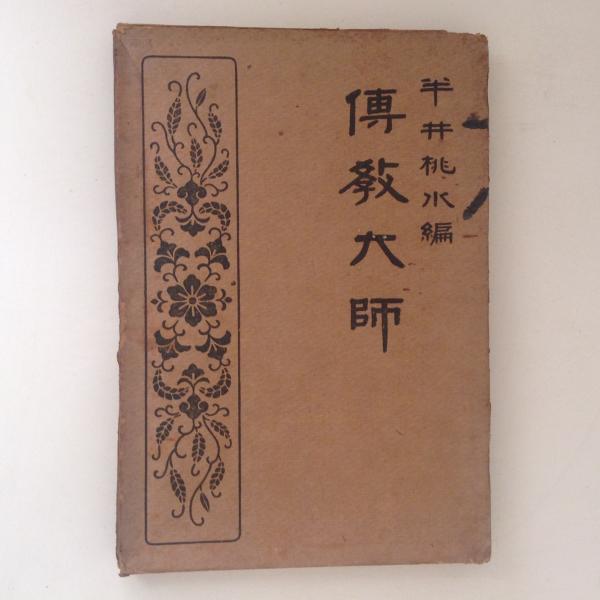 半井桃水編
傳敎大師